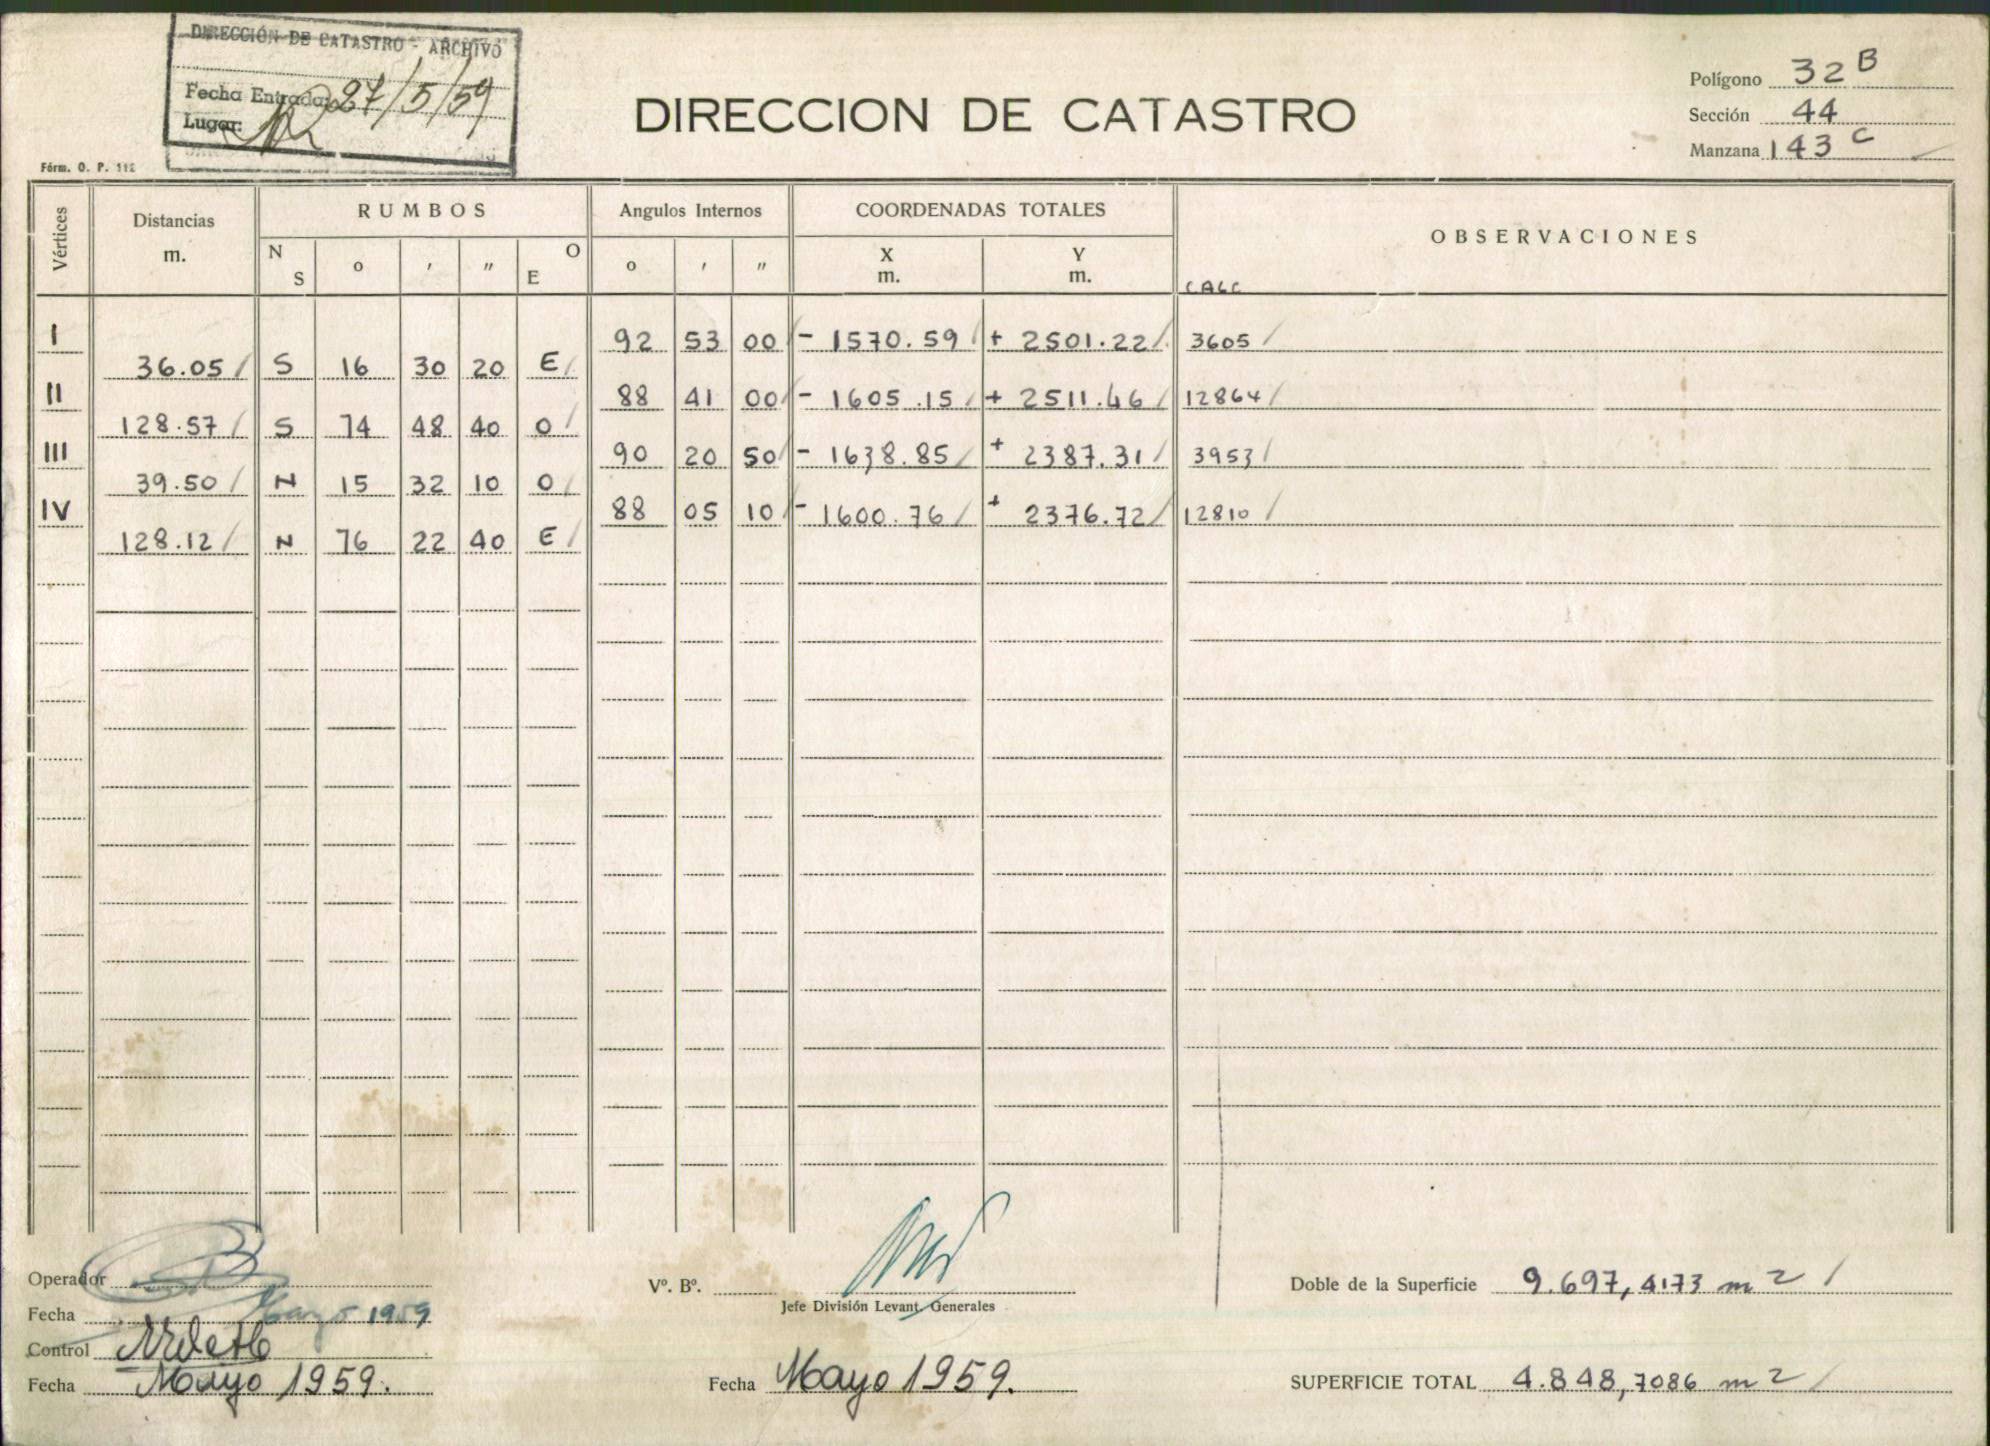 DIRECCIÓN DE CATASTRO - ARCHIVO
Fecha Entrada: 27/5/59
Lugar:
Fórm. O. P. 112
DIRECCION DE CATASTRO
Polígono 32 B
Sección 44
Manzana 143 C
Vértices
Distancias m.
RUMBOS
N S o ′ ″ O E
Angulos Internos
o ′ ″
COORDENADAS TOTALES
X m. Y m.
OBSERVACIONES
CALC
I 92 53 00 - 1570.59 + 2501.22 3605
36.05 S 16 30 20 E
II 88 41 00 - 1605.15 + 2511.46 12864
128.57 S 74 48 40 O
III 90 20 50 - 1638.85 + 2387.31 3953
39.50 N 15 32 10 O
IV 88 05 10 - 1600.76 + 2376.72 12810
128.12 N 76 22 40 E
Operador
Fecha Mayo 1959
Control
Fecha Mayo 1959.
Vº. Bº.
Jefe División Levant. Generales
Fecha Mayo 1959.
Doble de la Superficie 9.697,4173 m2
SUPERFICIE TOTAL 4.848,7086 m2